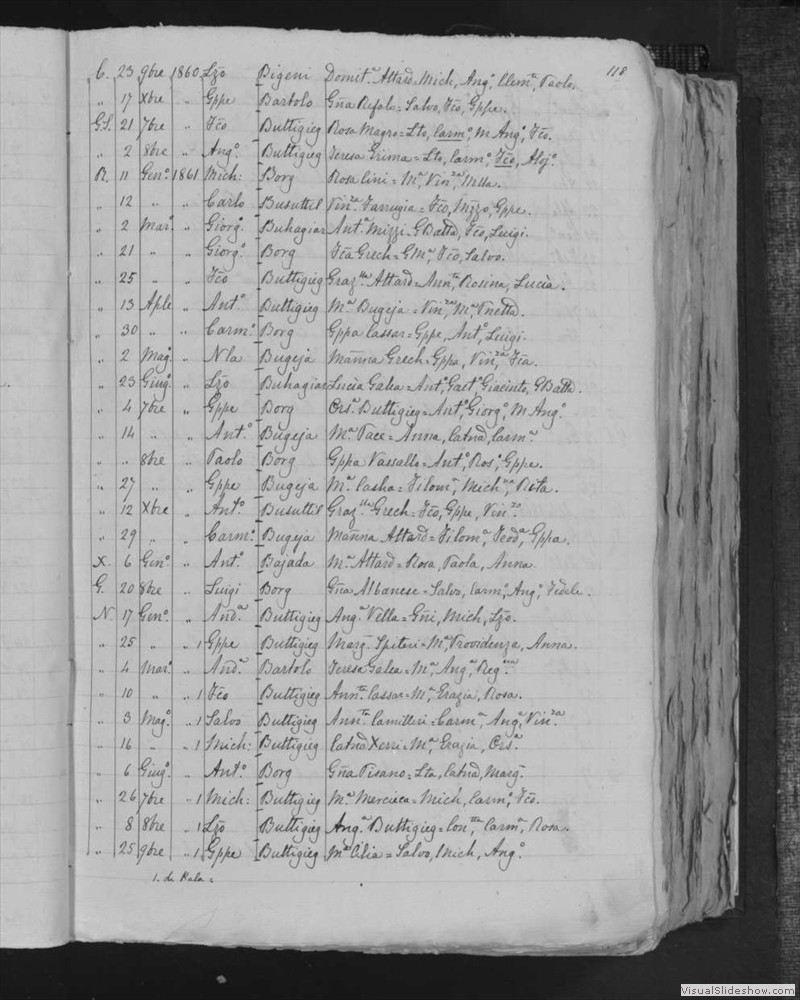 118
C. 23 9bre 1860 Lzo Bigeni Domit.a Attard, Mich, Ang.o Clem.a Paolo.
" 17 Xbre " Gppe Bartolo Gña Refalo = Salvo, Fco, Gppe.
G.S. 21 7bre " Fco Buttigieg Rosa Magro = Lto, Carm.o M Ang.o, Fco.
" 2 8bre " Ang.o Buttigieg Teresa Grima = Lto, Carm.o, Fco, Aloj.o
R. 11 Gen.o 1861 Mich: Borg Rosa Cini = M.a, Vin.za,
" 12 " " Carlo Busuttil Vin.za Farrugia = Fco, Gppe.
" 2 Mar.o " Giorg.o Buhagiar Ant.a Mizzi = GBatta, Fco, Luigi.
" 21 " " Giorg.o Borg Fca Grech = GM.a, Fco, Salvo.
" 25 " " Fco Buttigieg Graz.lla Attard = Ann.ta Rosina, Lucia.
" 13 Aple " Ant.o Buttigieg M.a Bugeja = Vin.za, M.a, Vnetta.
" 30 " " Carm.o Borg Gppa Cassar = Gppe, Ant.o Luigi.
" 2 Mag.o " Nla Bugeja Mañna Grech = Gppa, Vin.za, Fca.
" 23 Giug.o " Lzo Buhagiar Lucia Galea = Ant.o, Gaet.o Giacinto, GBatta.
" 4 7bre " Gppe Borg Ors.a Buttigieg = Ant.o, Giorg.o, M Ang.o
" 14 " " Ant.o Bugeja M.a Pace = Anna, Catna, Carm.a
" " 8bre " Paolo Borg Gppa Vassallo = Ant.o, Ros.o, Gppe.
" 27 " " Gppe Bugeja M.a Casha = Filom.a, Mich.na, Rita.
" 12 Xbre " Ant.o Busuttil Graz.lla Grech = Fco, Gppe, Vin.zo
" 29 " " Carm.o Bugeja Mañna Attard = Filom.a, Teod.a, Gppa.
X. 6 Gen.o " Ant.o Bajada M.a Attard = Rosa, Paola, Anna.
G. 20 8bre " Luigi Borg Gña Albanese = Salvo, Carm.o, Ang.o, Fidele.
N. 17 Gen.o " And.a Buttigieg Ang.a Vella = Gñi, Mich, Lzo.
" 25 " " 1 Gppe Buttigieg Marg. Spiteri = M.a, Providenza, Anna.
" 4 Mar.o " And.a Bartolo Teresa Galea = M.a, Ang.a, Reg.na
" 10 " " 1 Fco Buttigieg Ann.ta Cassar = M.a, Grazia, Rosa.
" 3 Mag.o " 1 Salvo Buttigieg Ann.ta Camilleri = Carm.a, Ang.a, Vin.za
" 16 " " 1 Mich: Buttigieg Catna Xerri = M.a, Grazia, Ors.a
" 6 Giug.o " Ant.o Borg Gña Pisano = Lta, Catna, Marg.
" 26 7bre " 1 Mich: Buttigieg M.a Mercieca = Mich, Carm.o, Fco.
" 8 8bre " 1 Lzo Buttigieg Ang.a Buttigieg = Con.tta, Carm.a, Rosa.
" 25 9bre " 1 Gppe Buttigieg M.a Cilia = Salvo, Mich, Ang.o
1. da Nala =
VisualSlideshow.com